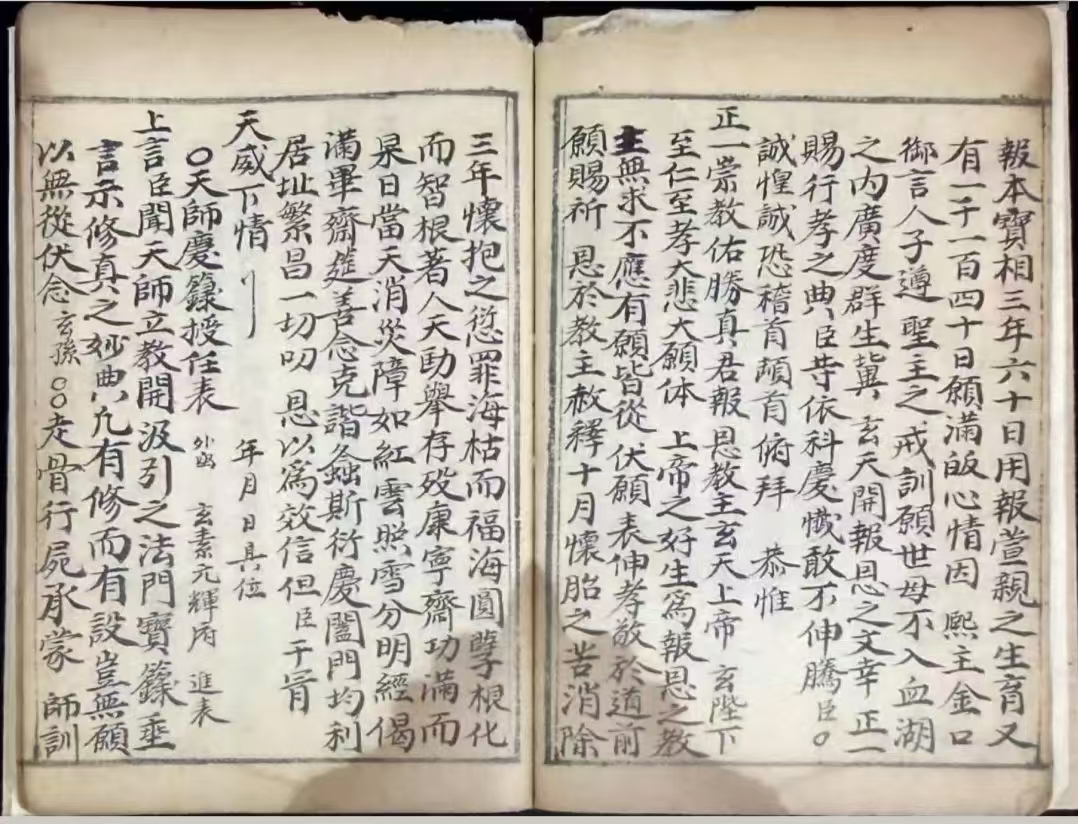 報本寶相三年六十日用報萱親之生育又
有一千一百四十日願滿皈心情因 熙主金口
御言人子遵 聖主之 戒訓願世母不入血湖
之内廣度群生冀 玄天開報恩之文幸 正一
賜行孝之典臣等依科慶懺敢不伸騰臣○
誠惶誠恐稽首頓首俯拜 恭惟
正一崇教佑勝真君報恩教主玄天上帝 玄陛下
至仁至孝大悲大願体 上帝之好生爲報恩之教
主無求不應有願皆從 伏願表伸孝敬於道前
願賜祈 恩於教主赦釋十月懷胎之苦消除
三年懷抱之愆罪海枯而福海圓孽根化
而智根著人天勛舉存殁康寧齋功滿而
杲日當天消災障如紅雲照雪分明經偈
滿畢齋筵善念克諧螽斯衍慶闔門均利
居址繁昌一切叨 恩以爲效信但臣干冐
天威下情 年月日具位
○天師慶籙授任表 玄素元輝府 進表
上言臣聞天師立教開汲引之法門寶籙垂
言示修真之妙典凡有修而有設豈無願
以無從伏念玄孫○○走骨行屍承蒙 師訓